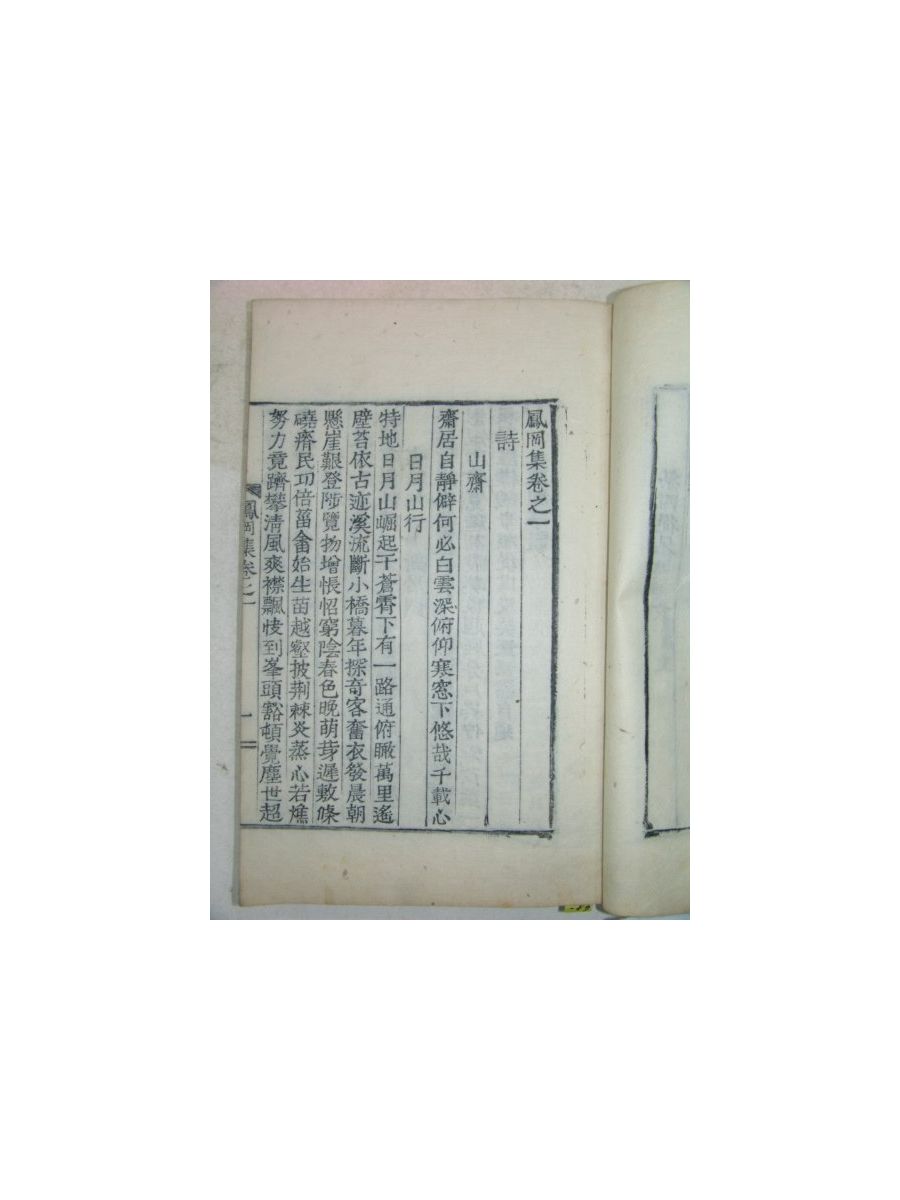 鳳岡集卷之一
詩
山齋
齋居自靜僻何必白雲深俯仰寒窓下悠哉千載心
日月山行
特地日月山崛起干蒼霄下有一路通俯瞰萬里遙
壁苔依古迹溪流斷小橋暮年探奇客奮衣發晨朝
懸崖艱登陟覽物增悵怊窮陰春色晩萌芽遲敷條
磽瘠民功倍菑畬始生苗越壑披荆棘炎蒸心若燋
努力竟躋攀淸風爽襟飄忮到峯頭豁頓覺塵世超
鳳岡集卷之一
一